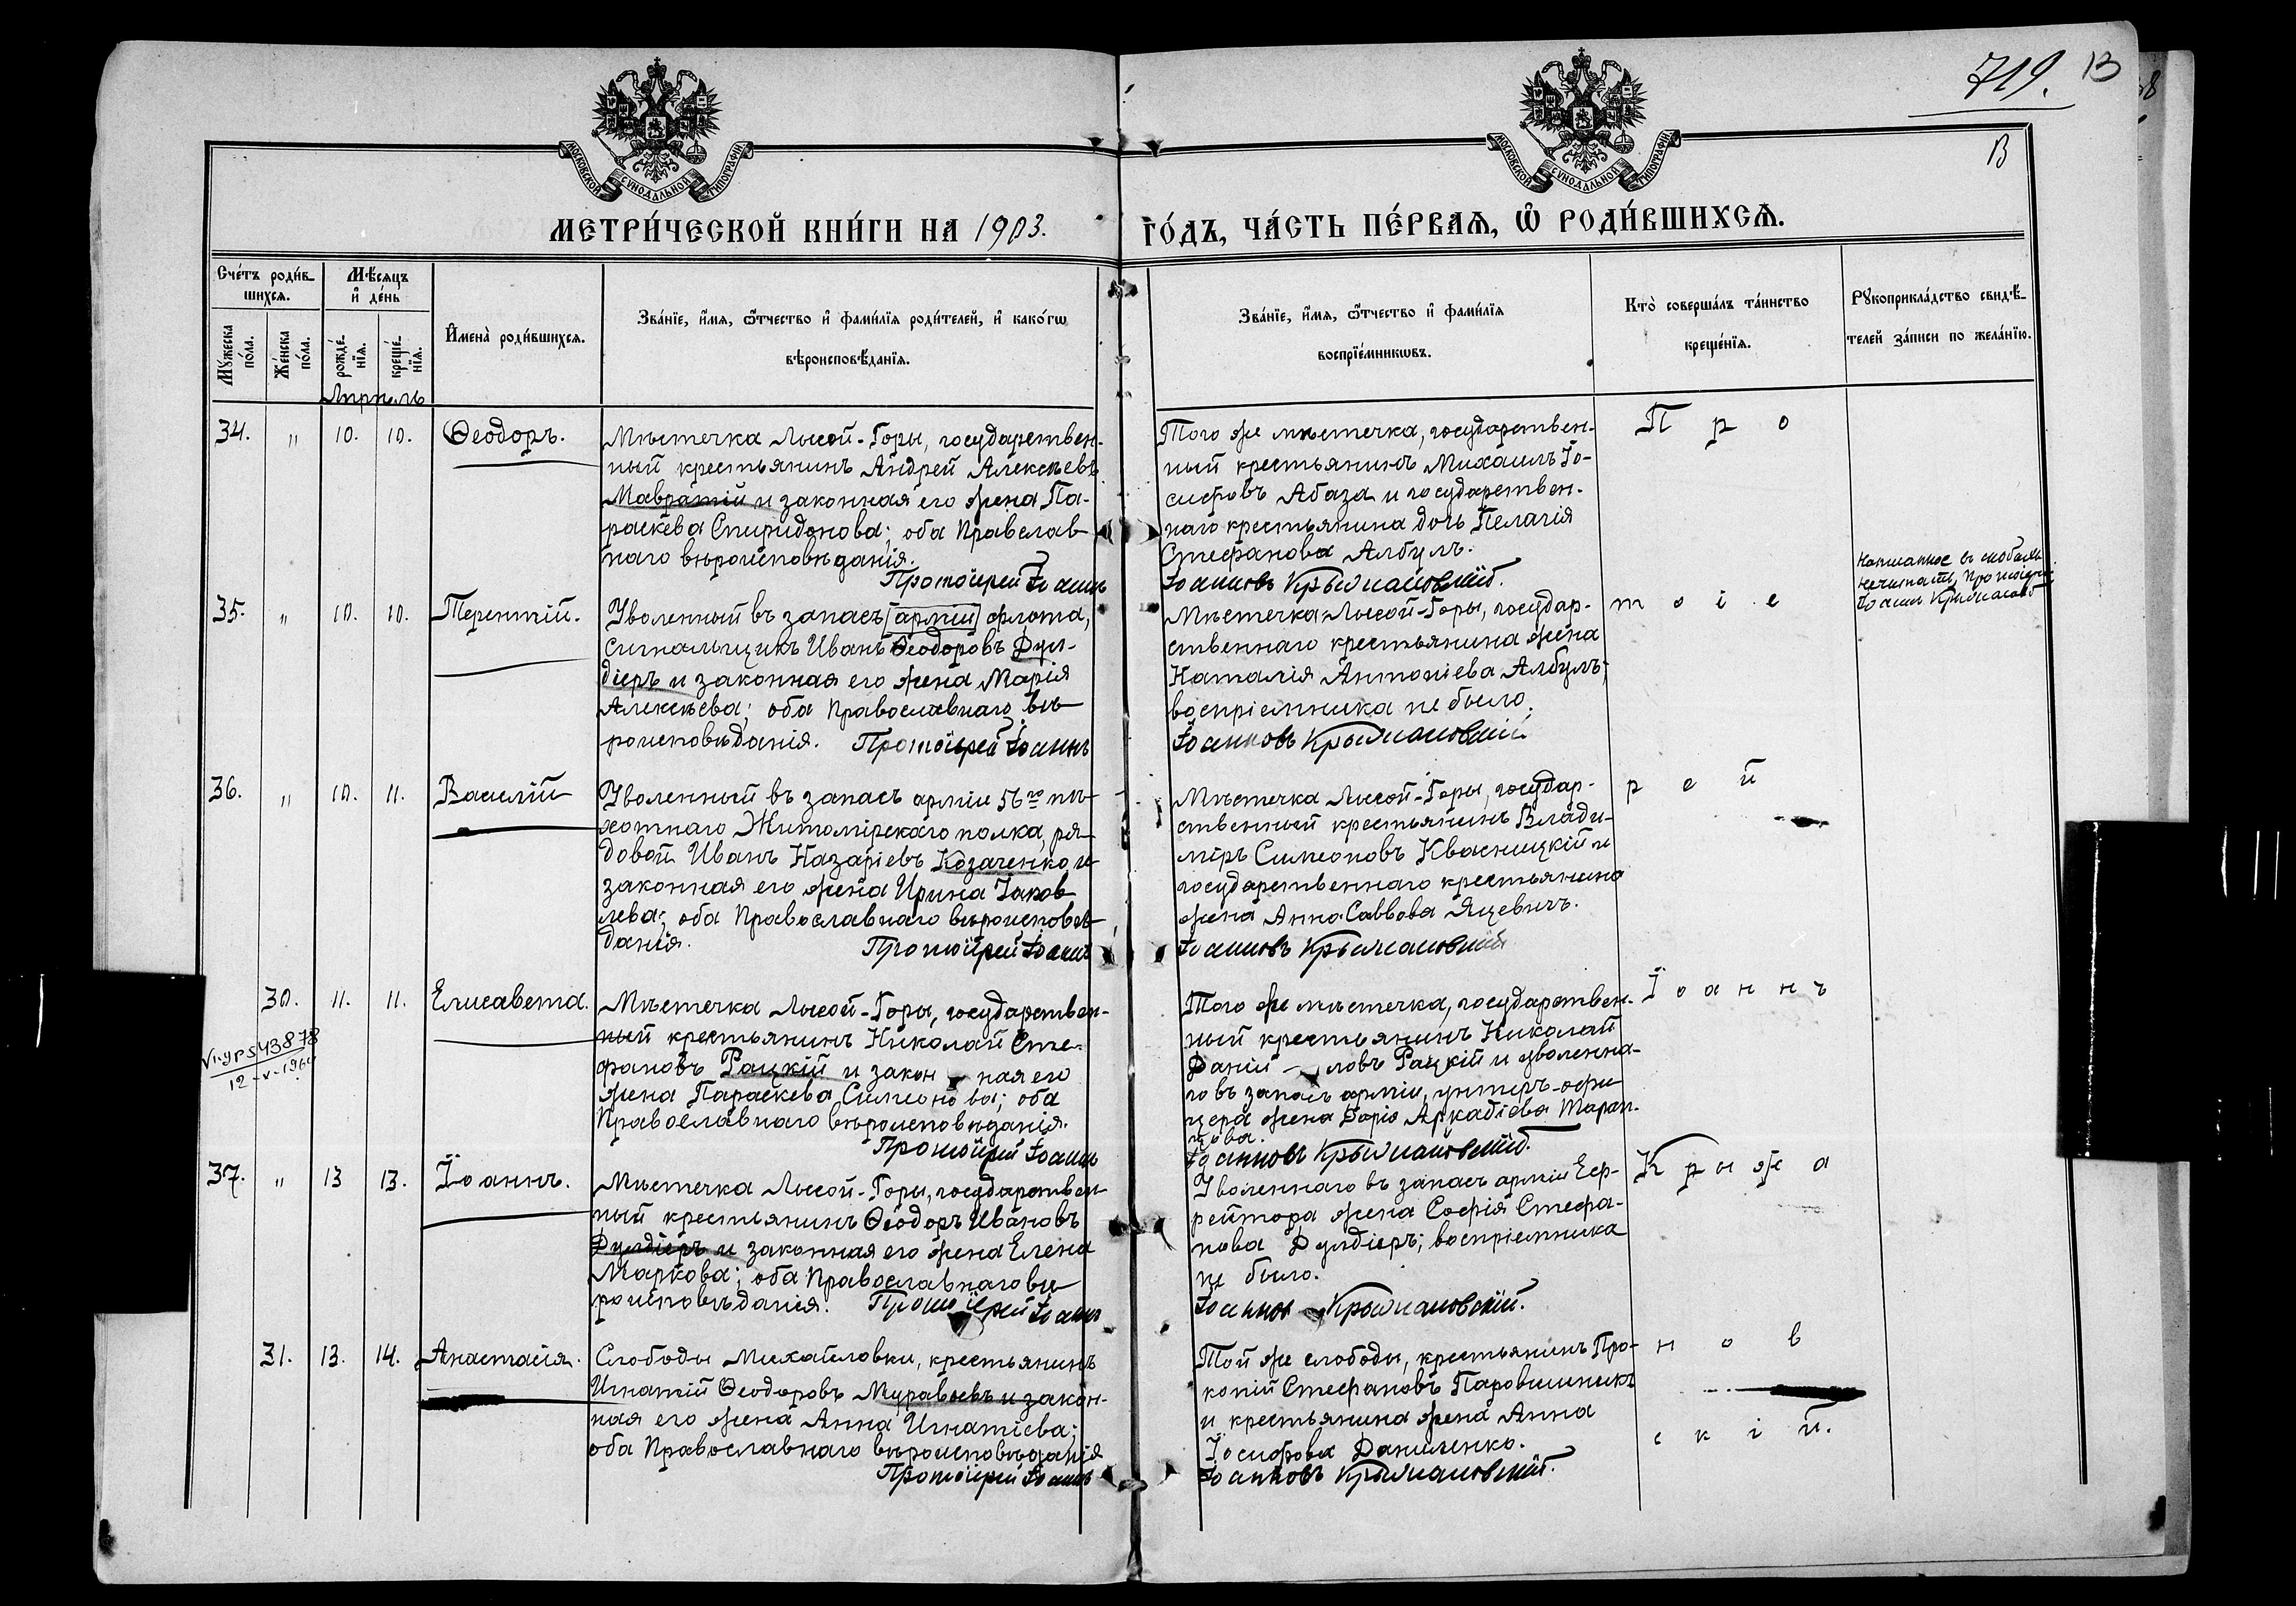 719. 13
13
МОСКОВСКОЙ СѴНОДАЛЬНОЙ ТИПОГРАФІИ
МОСКОВСКОЙ СѴНОДАЛЬНОЙ ТИПОГРАФІИ
МЕТРИ́ЧЕСКОЙ КНИ́ГИ НА 1903. ГО́ДЪ, ЧА́СТЬ ПЕ́РВАѦ, Ѽ РОДИ́ВШИХСѦ.
Сче́тъ роди́в-
шихсѧ.
Мѣ́сяцъ
и҆ де́нь
Мꙋ́жеска по́ла.
Же́нска по́ла.
рожде́-
нїѧ.
креще́-
нїѧ.
И҆мена̀ роди́вшихсѧ.
Зва́нїе, и҆́мѧ, ѻ҆́тчество и҆ фами́лїѧ роди́телей, и҆ како́гѡ
вѣроисповѣ́данїѧ.
Зва́нїе, и҆́мѧ, ѻ҆́тчество и҆ фами́лїѧ
воспрїе́мникѡвъ.
Кто̀ соверша́лъ та́инство
креще́нїѧ.
Рꙋкоприкла́дство свидѣ́-
телей за́писи по жела́нїю.
Апрѣль
34. " 10. 10. Ѳеодоръ.
Мѣстечка Лысой-Горы, государствен-
ный крестьянинъ Андрей Алексѣевъ
Мавратій и законная его жена Па-
раскева Спиридонова; оба Православ
наго вѣроисповѣданія.
Протоіерей Іоаннъ
Того же мѣстечка, государствен-
ный крестьянинъ Михаилъ Іо-
сифовъ Абаза и государствен-
наго крестьянина дочь Пелагія
Стефанова Албулъ.
Іоанновъ Крыжановскій.
П р о
35. " 10. 10. Терентій.
Уволенный въ запасъ [арміи] флота,
сигнальщикъ Иванъ Ѳеодоровъ Дул-
діеръ и законная его жена Марія
Алексѣева; оба Православнаго вѣ
роисповѣданія. Протоіерей Іоаннъ
Мѣстечка Лысой-Горы, государ-
ственнаго крестьянина жена
Наталія Антоніева Албулъ;
воспріемника не было.
Іоанновъ Крыжановскій
т о і е
Написанное въ скобкахъ
не читать, Протоіерей
Іоаннъ Крыжановс
36. " 10. 11. Василій
Уволенный въ запасъ арміи 56го пѣ-
хотнаго Житомірскаго полка, ря-
довой Иванъ Назаріевъ Козаченко и
законная его жена Ирина Іаков
лева; оба Православнаго вѣроисповѣ
данія. Протоіерей Іоаннъ
Мѣстечка Лысой-Горы, государ-
ственный крестьянинъ Влади-
міръ Симеоновъ Квасницкій и
государственнаго крестьянина
жена Анна Саввова Яцевичъ.
Іоанновъ Крыжановскій
р е й
30. 11. 11. Елисавета.
V1-УР 543878
12-V-1960
Мѣстечка Лысой-Горы, государствен-
ный крестьянинъ Николай Сте-
фановъ Рацкій и закон ная его
жена Параскева Симеонова; оба
Православнаго вѣроисповѣданія.
Протоіерей Іоаннъ
Того же мѣстечка, государствен-
ный крестьянинъ Николай
Даніи — ловъ Рацкій и уволенна-
го въ запасъ арміи, унтеръ-офи
цера жена Дарія Аркадіева Таран-
цова.
Іоанновъ Крыжановскій.
І о а н н ъ
37. " 13 13. Іоаннъ.
Мѣстечка Лысой-Горы, государствен
ный крестьянинъ Ѳеодоръ Ивановъ
Дулдіеръ и законная его жена Елена
Маркова; оба Православнаго вѣ
роисповѣданія. Протоіерей Іоаннъ
Уволеннаго въ запасъ арміи Еф-
рейтора жена Софія Стефа-
нова Дулдіеръ; воспріемника
не было.
Іоаннов Крыжановскій.
К р ы ж а
31. 13. 14. Анастасія.
Слободы Михайловки, крестьянинъ
Игнатій Ѳеодоровъ Муравьевъ и закон-
ная его жена Анна Игнатіева;
оба Православнаго вѣроисповѣданія
Протоіерей Іоаннъ
Той же слободы, крестьянинъ Про-
копій Стефановъ Паровишникъ
и крестьянина жена Анна
Іосифова Даниленко.
Іоанновъ Крыжановскій.
н о в
с к і й.